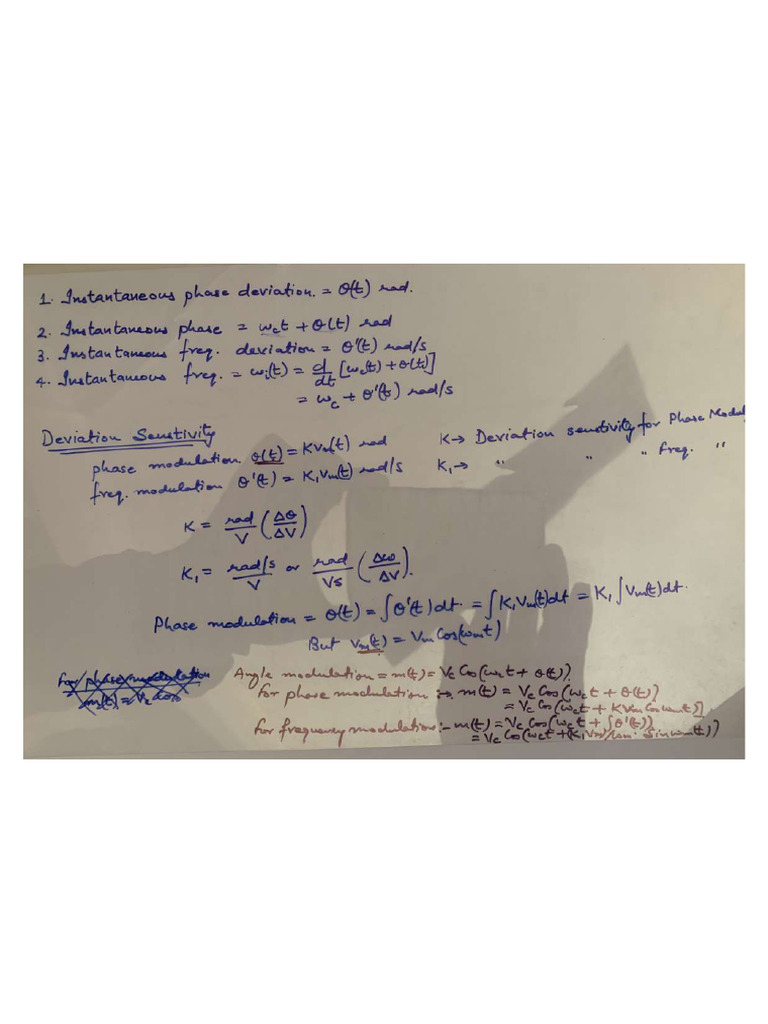 1. Instantaneous phase deviation. = θ(t) rad.
2. Instantaneous phase = ωct + θ(t) rad
3. Instantaneous freq. deviation = θ'(t) rad/s
4. Instantaneous freq. = ωi(t) = d/dt [ωc(t) + θ(t)]
= ωc + θ'(t) rad/s
Deviation Senstivity
phase modulation θ(t) = Kvm(t) rad K→ Deviation senstivity for Phase Modul
freq. modulation θ'(t) = K1Vm(t) rad/s K1→ " " " freq. "
K = rad/V (Δθ/ΔV)
K1 = rad/s/V or rad/Vs (Δω/ΔV).
Phase modulation = θ(t) = ∫θ'(t)dt = ∫K1Vm(t)dt = K1∫Vm(t)dt.
But Vm(t) = Vm Cos(ωmt)
For phase modulation
m(t) = Vc Cos
Angle modulation = m(t) = Vc Cos(ωct + θ(t))
for phase modulation :→ m(t) = Vc Cos(ωct + θ(t))
= Vc Cos(ωct + KVm Cosωmt)]
for frequency modulation :- m(t) = Vc Cos(ωct + ∫θ'(t))
= Vc Cos(ωct + (K1Vm/ωm. Sinωmt))